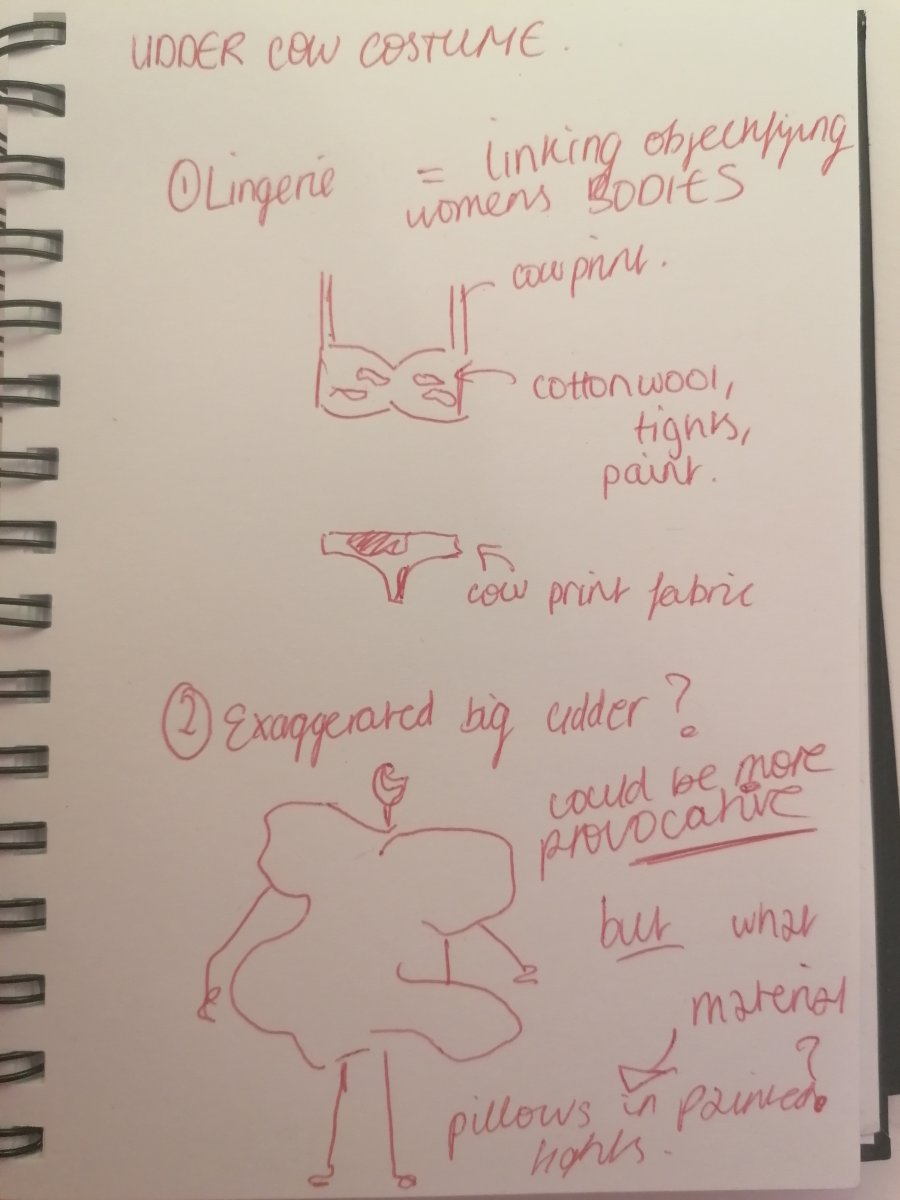 UDDER COW COSTUME.
① Lingerie = linking objectifying
womens BODIES
cow print.
cotton wool,
tights,
paint.
cow print fabric
② Exaggerated big udder?
could be more
provocative
but what
material
?
pillows in painted
tights.